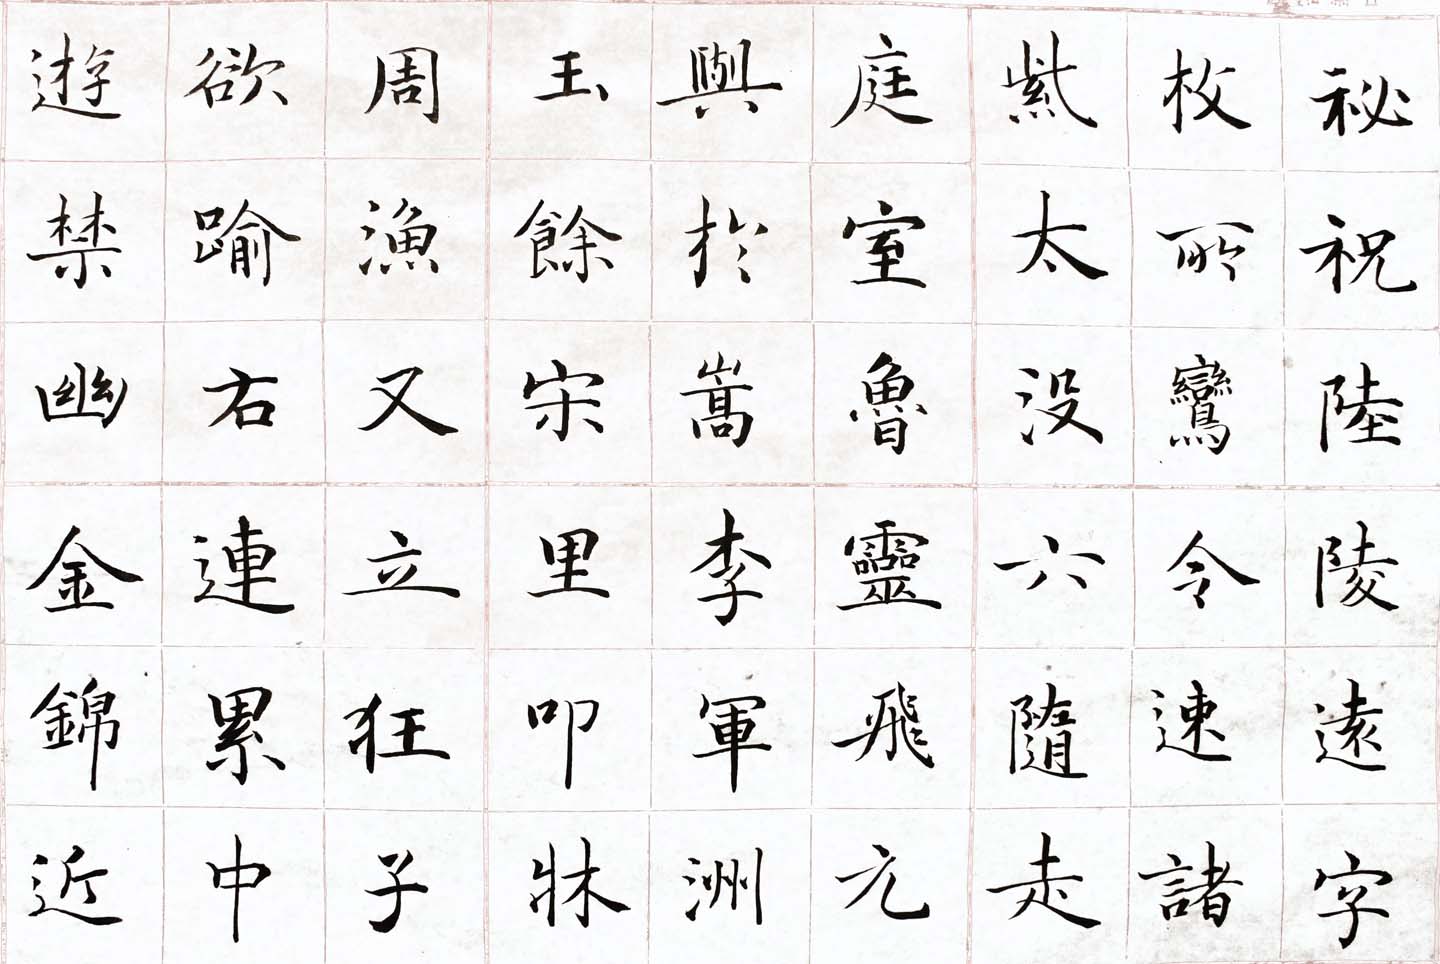 秘祝陸陵遠字
枚所鸞令速諸
紫太没六隨走
庭室魯靈飛元
與於嵩李軍洲
玉餘宋里叩牀
周漁又立狂子
欲踰右連累中
遊禁幽金錦近